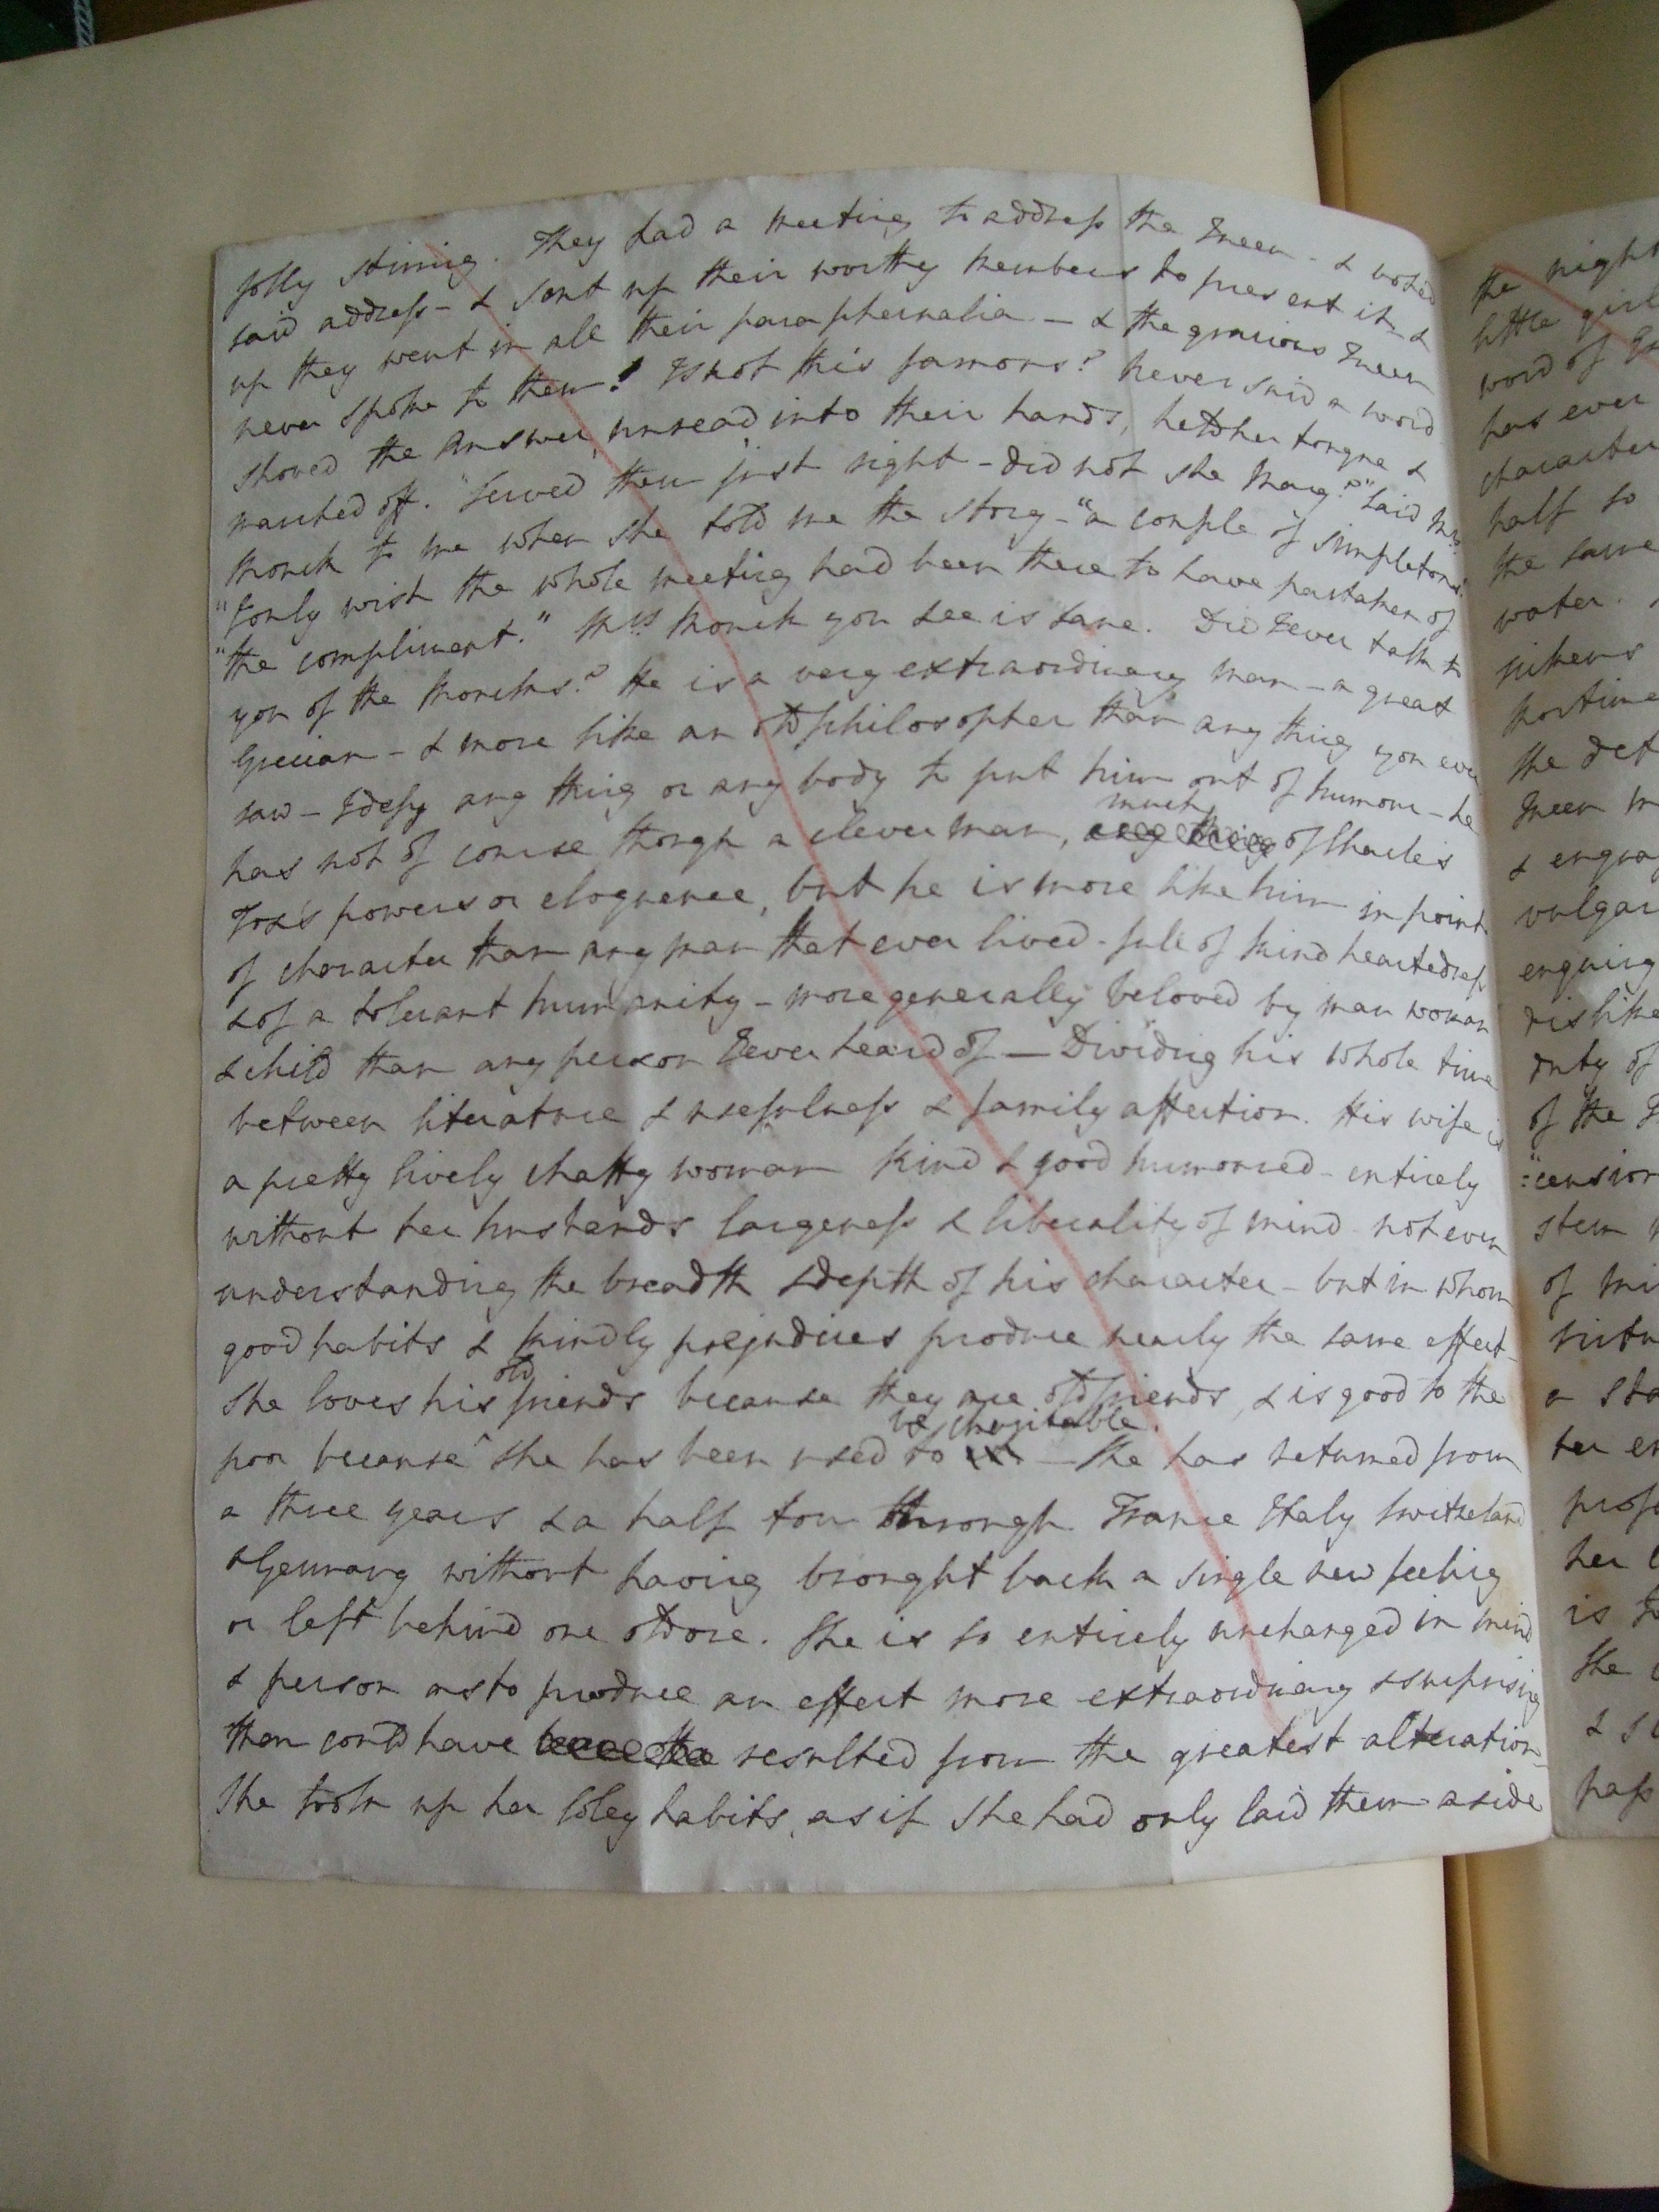 folly stirring. They had a meeting to address the Queen - & voted
said address - & sent up their worthy members to present it - &
up they went in all their paraphernalia - & the gracious Queen
never spoke to them! Is not this famous? Never said a word
shoved the answer, unread into their hands, held her tongue &
marched off. "Served them just right - did not she Mary?" said Mrs.
Monck to me when she told me the story - "a couple of simpletons!
"I only wish the whole meeting had been there to have partaken of
"the compliment." Mrs. Monck you see is sane. Did I ever talk to
you of the Moncks? He is a very extraordinary man - a great
Grecian - & more like an old philosopher than any thing you ever
saw - I defy any thing or any body to put him out of humour - he
has not of course though a clever man, much of Charles
Fox's powers or eloquence, but he is more like him in point
of character than any man that ever lived - full of kind heartedness
& of a tolerant humanity - more generally beloved by man woman
& child than any person I ever heard of - Dividing his whole time
between literature & usefulness & family affection. His wife is
a pretty lively chatty woman kind & good humoured - entirely
without her husbands largeness & liberality of mind not even
understanding the breadth & depth of his character - but in whom
good habits & kindly prejudices produce nearly the same effect -
She loves his old friends because they are old friends, & is good to the
poor because she has been used to be charitable. - She has returned from
a three years & a half tour through France Italy Switzeland
& Germany without having brought back a single new feeling
or left behind one old one. She is so entirely unchanged in mind
& person as to produce an effect more extraordinary & surprising
than could have resulted from the greatest alteration -
She took up her Coley habits, as if she had only laid them aside
the night
little girl
word of
has ever
character
half so
the same
water.
the
Queen
& engra
vulgar
enquiry
dislike
duty of
of the
:"cension
stem
of
a sta
her
her
is
She
&